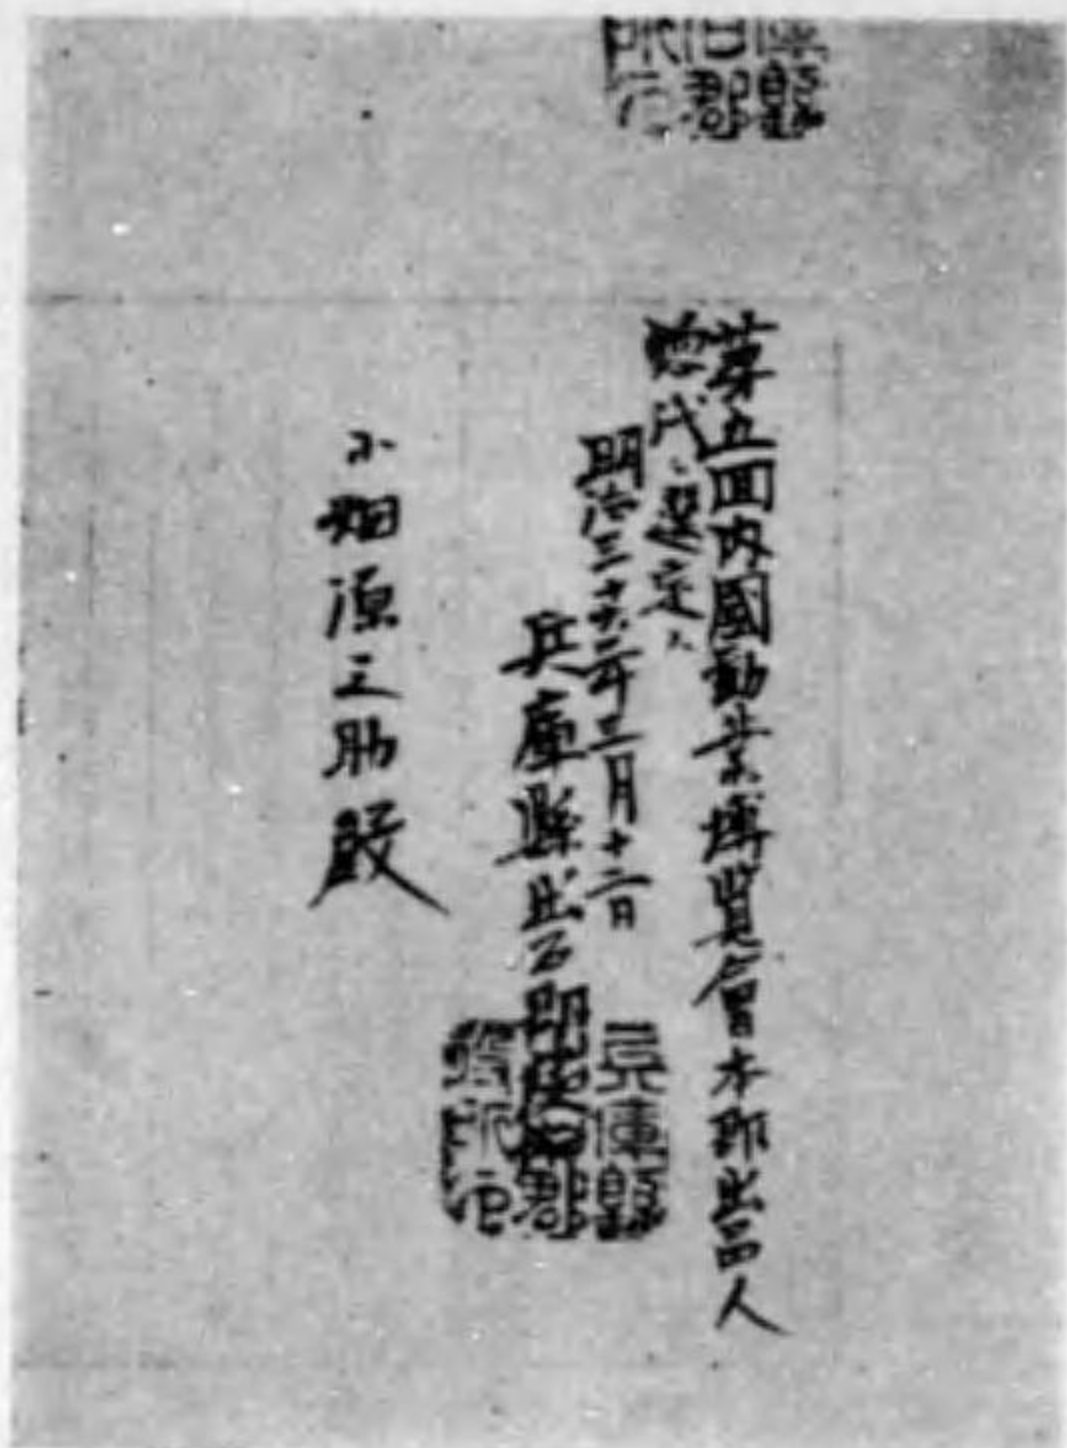 庫縣
石郡
所印
第五回内國勧業博覧會本郡出品人
惣代ニ選定ス
明治三十六年三月十二日
兵庫縣出石郡役所
兵庫縣
出石郡
役所印
小畑源之助殿